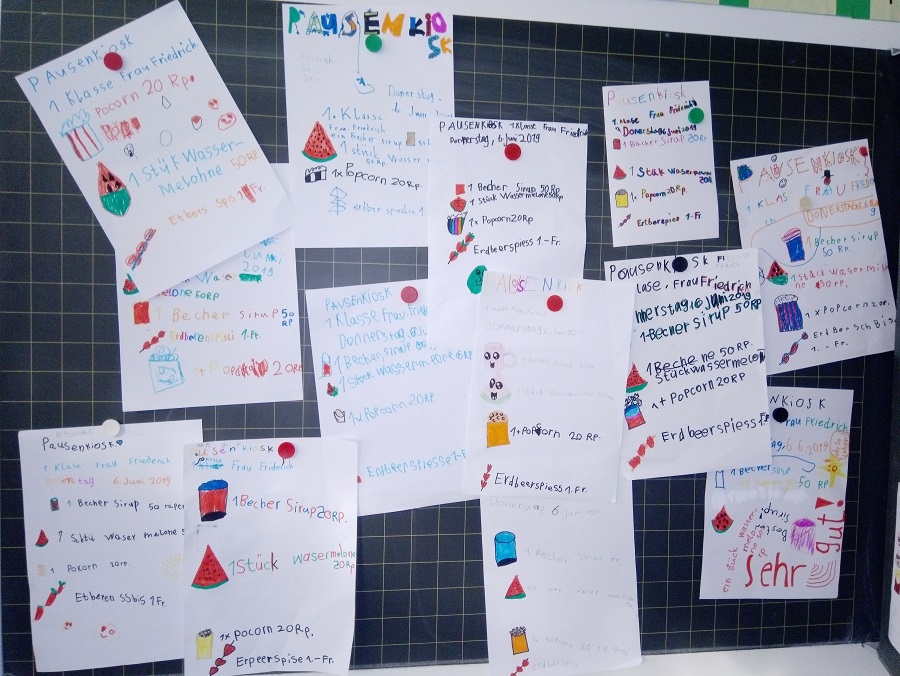 PAusenKiosk
1 Klasse Frau Friedrich
Pocorn 20 Rp.
1 Stük Wasser-
Melohne 50Rp
Etbers Sps 1 Fr.
PAUSENKIO
SK
Donerstag
1. KLasse
Frau Friedrich
1 Becher Sirup
1 Stück Wasser
1x Popcorn 20Rp.
erdber spiesse 1.
PAUSENKiosK 1 Klasse Frau Friedrich
Donnerstag, 6. Juni 2019
1 Becher Sirup 50 Rp
1 Stück Wassermelone 50Rp
1x Popcorn 20Rp
Erdbeerspiess 1.-Fr.
Pausenkiosk
1. Klase Frau Friedrich
Donerstag 6 juni 2019
1 Bächer Sirup 50Rp
1 Stük Wasermelone
20Rp
1x Popcorn 20Rp.
Ertberspiess 1-Fr.
PAUSENKIOSK
1. KLAS FRAU FRIED
DONERSTAG
1 Becher Sirup
50 Rp.
1 stück wasermilo
ne 50Rp.
1 x POPCORN 20Rp.
ErdBerSchBis
1. - Fr.
2019
melone 50Rp
1 Becher Sirup 50
RP
Erdberenspissli 1-Fr.
1+ Popcorn 20Rp
PAUSENKiosk
1 Klasse Frau Fried
Donnerstag, 6.Ju
1 Becher Sirup
1 Stück
1x PoPcorn 20Rp
Erdbeerspiesse 1-F
PAUSENKIOSK
Donnerstag
1+PoPcorn 20 Rp.
Erdbeerspiess 1.Fr.
Pausenkiosk
lase, Frau Friedrich
nnerstag, 6 juni 2019
1 Becher Sirup 50Rp
1 Beche ne 50 RP.
Stückwassermelon
1+Popcorn 20Rp
Erdbeerspiess 1.F
NKIOSK
Frau Friedrich
6 6.2019
50 Rp
ein stück wasser
melone
Besten
Sirup
Sehr gut!
Pausenkiosk
1 Klase Frau Friederich
6 Juni 2019
1 Becher Sirup 50 rapen
1 Schtü waser melone
1 Pokorn 20rp.
Etberen SSbis 1Fr.
Pausenkiosk
Frau Friderich
1 Becher Sirup 20RP.
1 Stück wasermelone
20Rp
1x pocorn 20 Rp.
Erpeerspise 1.-Fr.
Donnerstag 6 juni